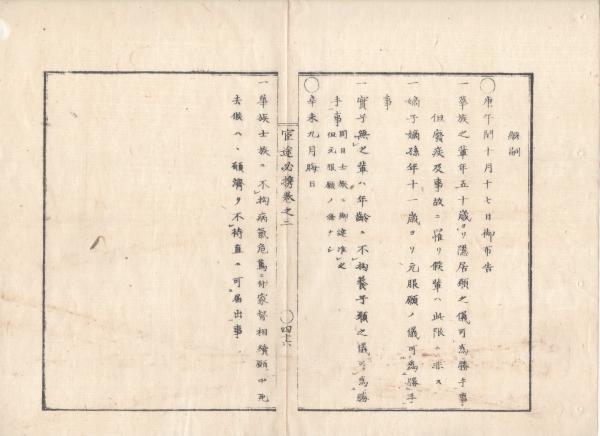 継嗣
◯庚午閏十月十七日御布告
一華族之輩年五十歳ヨリ隠居願之儀可為勝手事
但癈疾及事故ニ罹リ候輩ハ此限ニ非ス
一嫡子嫡孫年十一歳ヨリ元服願ノ儀可為勝手
事
一實子無之輩ハ年齢ニ不拘養子願之儀可為勝
手事
同日士族ニ御達准之
但元服願ノ儀ナシ
◯辛未九月晦日
官途必携巻之二
◯四十六
一華族士族ニ不拘病氣危篤ニ付家督相續願中死
去候ハヽ願濟ヲ不待直ニ可届出事